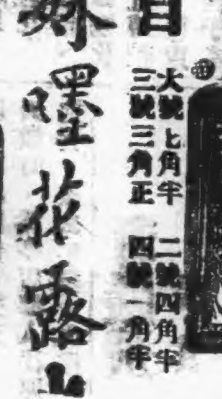 目
大號七角半 二號四角半
三號三角正 四號一角半
妹嚜花露